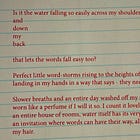 Is it the water falling so easily across my shoulders
and
down
my
back
that lets the words fall easy too?
Perfect little word-storms rising to the heights of
landing in my hands in a way that says - they need
Slower breaths and an entire day washed off my
worn like a perfume of I will it so. I count it lovely
an entire house of rooms, water itself has its very
an invitation where words can have their way, all
my hair.